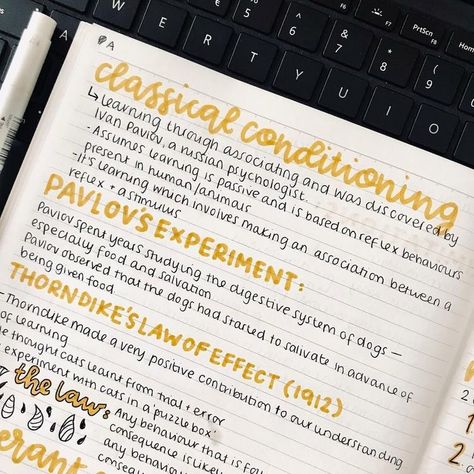 classical conditioning
↳ Learning through associating and was discovered by
Ivan Pavlov, a russian psychologist.
- Assumes learning is passive and is based on reflex behaviours
present in human/animals
- it's learning which involves making an association between a
reflex + a stimulus
PAVLOV'S EXPERIMENT:
Pavlov spent years studying the digestive system of dogs –
especially food and salivation
Pavlov observed that the dogs had started to salivate in advance of
being given food
THORNDIKE'S LAW OF EFFECT (1912)
- Thorndike made a very positive contribution to our understanding
of learning
thought cats learnt from trial + error
experiment with cats in a puzzle box
the law:
Any behaviour that is
consequence is likely
any behaviour